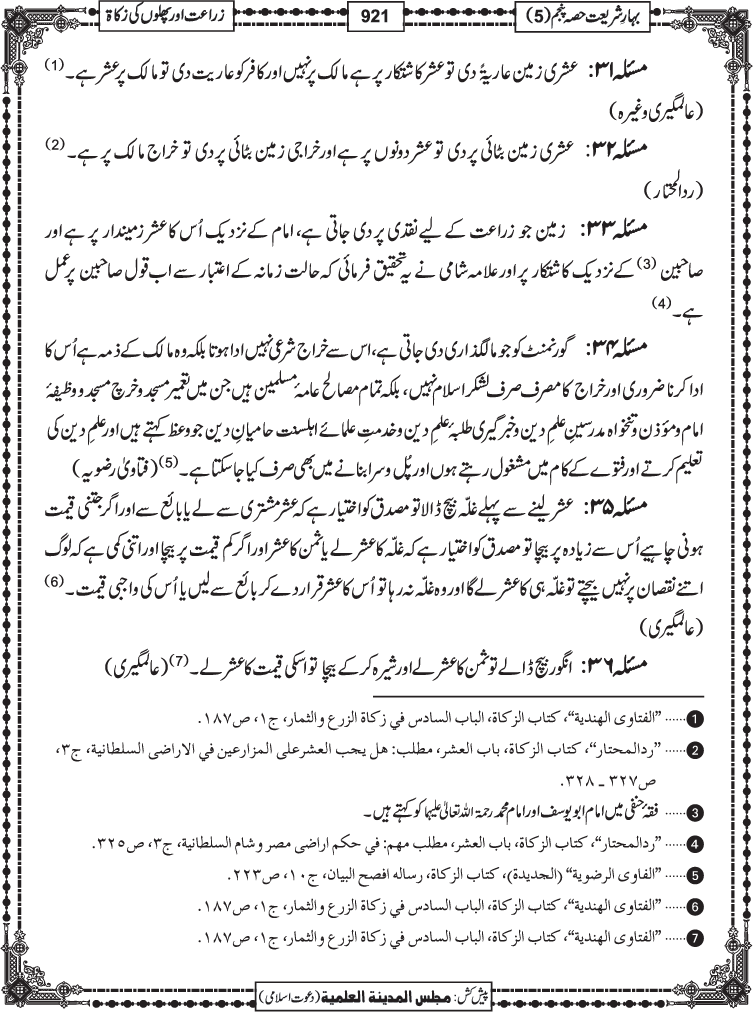 بہارِ شریعت حصہ پنجم (5)
921
زراعت اور پھلوں کی زکاۃ
مسئلہ ۳۱: عشری زمین عاریۃً دی تو عشر کاشتکار پر ہے مالک پر نہیں اور کافر کو عاریت دی تو مالک پر عشر ہے۔ (1)
(عالمگیری وغیرہ)
مسئلہ ۳۲: عشری زمین بٹائی پر دی تو عشر دونوں پر ہے اور خراجی زمین بٹائی پر دی تو خراج مالک پر ہے۔ (2)
(ردالمحتار)
مسئلہ ۳۳: زمین جو زراعت کے لیے نقدی پر دی جاتی ہے، امام کے نزدیک اُس کا عشر زمیندار پر ہے اور
صاحبین (3) کے نزدیک کاشتکار پر اور علامہ شامی نے یہ تحقیق فرمائی کہ حالت زمانہ کے اعتبار سے اب قول صاحبین پر عمل
ہے۔ (4)
مسئلہ ۳۴: گورنمنٹ کو جو مالگذاری دی جاتی ہے، اس سے خراج شرعی نہیں ادا ہوتا بلکہ وہ مالک کے ذمہ ہے اُس کا
ادا کرنا ضروری اور خراج کا مصرف صرف لشکر اسلام نہیں، بلکہ تمام مصالح عامۂ مسلمین ہیں جن میں تعمیر مسجد و خرچ مسجد و وظیفۂ
امام و مؤذن و تنخواہ مدرسینِ علمِ دین و خبرگیری طلبۂ علمِ دین و خدمتِ علمائے اہلسنت حامیانِ دین جو وعظ کہتے ہیں اور علمِ دین کی
تعلیم کرتے اور فتوے کے کام میں مشغول رہتے ہوں اور پُل و سرا بنانے میں بھی صرف کیا جا سکتا ہے۔ (5) (فتاویٰ رضویہ)
مسئلہ ۳۵: عشر لینے سے پہلے غلّہ بیچ ڈالا تو مصدق کو اختیار ہے کہ عشر مشتری سے لے یا بائع سے اور اگر جتنی قیمت
ہونی چاہیے اُس سے زیادہ پر بیچا تو مصدق کو اختیار ہے کہ غلّہ کا عشر لے یا ثمن کا عشر اور اگر کم قیمت پر بیچا اور اتنی کمی ہے کہ لوگ
اتنے نقصان پر نہیں بیچتے تو غلّہ ہی کا عشر لے گا اور وہ غلّہ نہ رہا تو اُس کا عشر قرار دے کر بائع سے لیں یا اُس کی واجبی قیمت۔ (6)
(عالمگیری)
مسئلہ ۳۶: انگور بیچ ڈالے تو ثمن کا عشر لے اور شیرہ کر کے بیچا تو اسکی قیمت کا عشر لے۔ (7) (عالمگیری)
1 ...... ”الفتاوی الهندية“، كتاب الزكاة، الباب السادس في زكاة الزرع والثمار، ج۱، ص۱۸۷.
2 ...... ”ردالمحتار“، كتاب الزكاة، باب العشر، مطلب: هل يجب العشر على المزارعين في الاراضى السلطانية، ج۳،
ص۳۲۷ ـ ۳۲۸.
3 ...... فقۂ حنفی میں امام ابو یوسف اور امام محمد رحمۃ اللہ تعالیٰ علیہما کو کہتے ہیں۔
4 ...... ”ردالمحتار“، كتاب الزكاة، باب العشر، مطلب مهم: في حكم اراضى مصر و شام السلطانية، ج۳، ص۳۲۵.
5 ...... ”الفاوى الرضوية“ (الجديدة)، كتاب الزكاة، رساله افصح البيان، ج۱۰، ص۲۲۳.
6 ...... ”الفتاوى الهندية“، كتاب الزكاة، الباب السادس في زكاة الزرع والثمار، ج۱، ص۱۸۷.
7 ...... ”الفتاوى الهندية“، كتاب الزكاة، الباب السادس في زكاة الزرع والثمار، ج۱، ص۱۸۷.
پیش کش: مجلس المدينة العلمية (دعوت اسلامی)